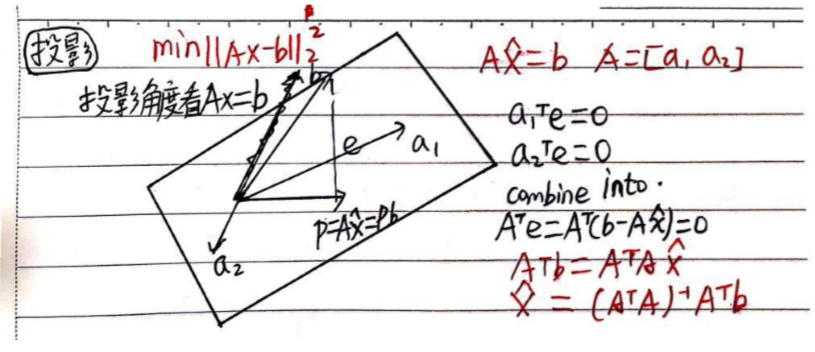 投影
min||Ax-b||₂²
投影角度看Ax=b
b
e
a₁
p=Ax̂=Pb
a₂
Ax̂=b A=[a₁ a₂]
a₁ᵀe=0
a₂ᵀe=0
combine into.
Aᵀe=Aᵀ(b-Ax̂)=0
Aᵀb=AᵀAx̂
x̂=(AᵀA)⁻¹Aᵀb